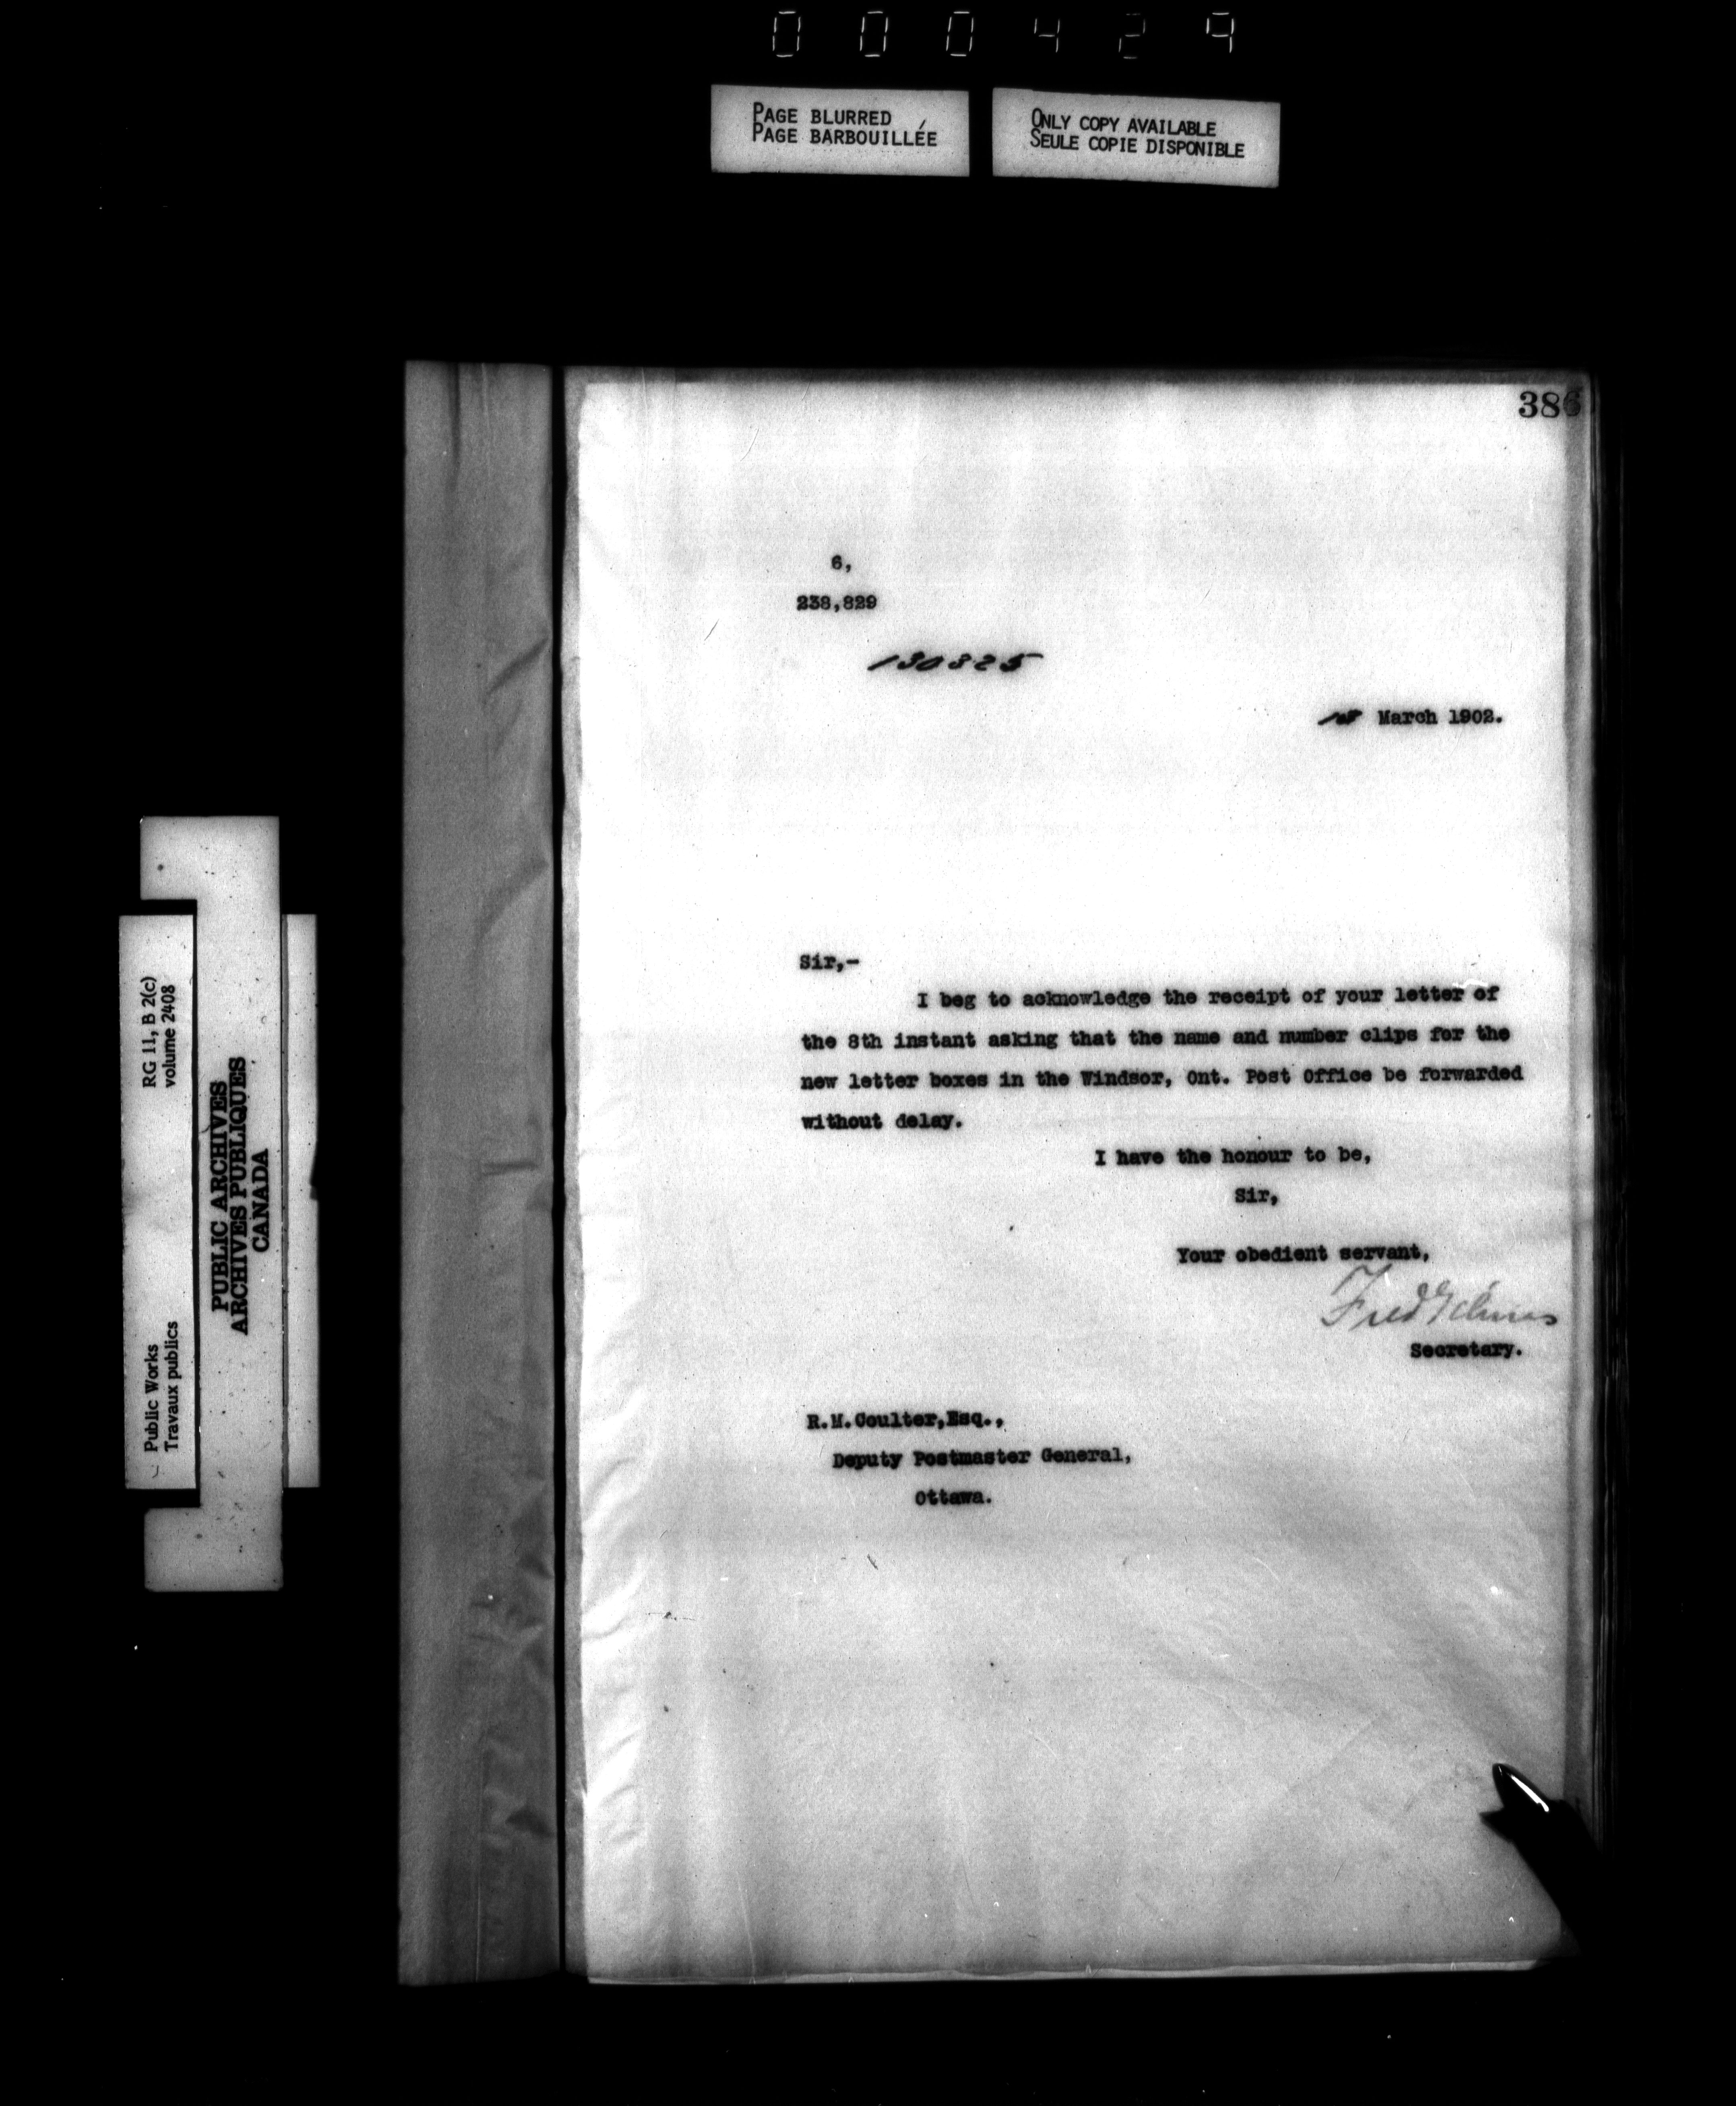 000429
PAGE BLURRED
PAGE BARBOUILLÉE
ONLY COPY AVAILABLE
SEULE COPIE DISPONIBLE
386
6,
238,829
130325
March 1902.
Sir,-
I beg to acknowledge the receipt of your letter of
the 8th instant asking that the name and number clips for the
new letter boxes in the Windsor, Ont. Post Office be forwarded
without delay.
I have the honour to be,
Sir,
Your obedient servant,
Fred Gélinas
Secretary.
R.M.Coulter,Esq.,
Deputy Postmaster General,
Ottawa.
RG 11, B 2(c)
volume 2408
PUBLIC ARCHIVES
ARCHIVES PUBLIQUES
CANADA
Public Works
Travaux publics